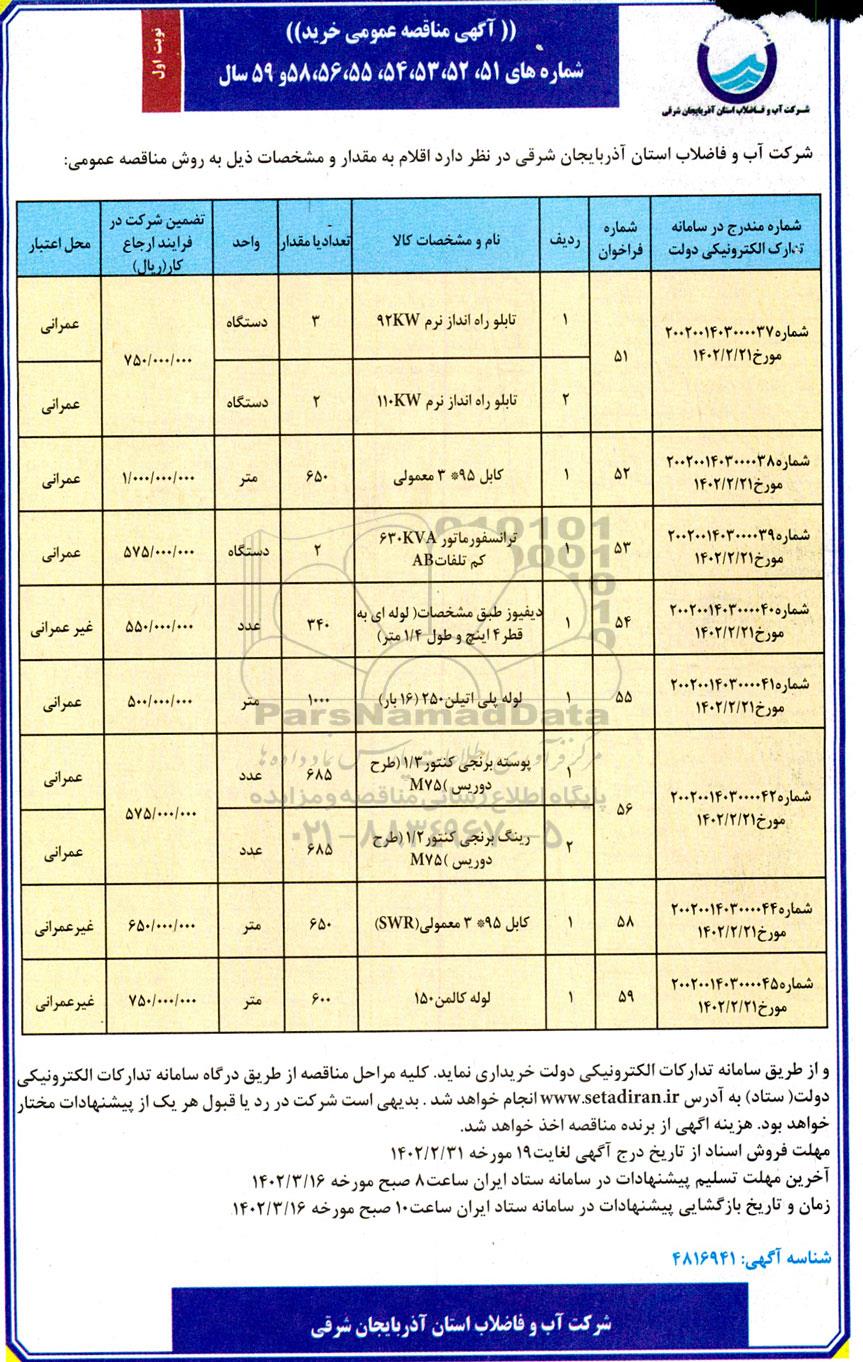 (( آگهی مناقصه عمومی خرید))
شماره های ۵۱، ۵۲، ۵۳،۵۴، ۵۵،۵۶،۵۸و ۵۹ سال
نوبت اول
شرکت آب و فاضلاب استان آذربایجان شرقی
شرکت آب و فاضلاب استان آذربایجان شرقی در نظر دارد اقلام به مقدار و مشخصات ذیل به روش مناقصه عمومی:
شماره مندرج در سامانه تدارک الکترونیکی دولت
شماره فراخوان
ردیف
نام و مشخصات کالا
تعدادیا مقدار
واحد
تضمین شرکت در فرایند ارجاع کار(ریال)
محل اعتبار
شماره۲۰۰۲۰۰۱۴۰۳۰۰۰۰۳۷ مورخ۱۴۰۲/۲/۲۱
۵۱
۱
تابلو راه انداز نرم ۹۲KW
۳
دستگاه
۷۵۰/۰۰۰/۰۰۰
عمرانی
۲
تابلو راه انداز نرم ۱۱۰KW
۲
دستگاه
عمرانی
شماره۲۰۰۲۰۰۱۴۰۳۰۰۰۰۳۸ مورخ۱۴۰۲/۲/۲۱
۵۲
۱
کابل ۹۵* ۳ معمولی
۶۵۰
متر
۱/۰۰۰/۰۰۰/۰۰۰
عمرانی
شماره۲۰۰۲۰۰۱۴۰۳۰۰۰۰۳۹ مورخ۱۴۰۲/۲/۲۱
۵۳
۱
ترانسفورماتور ۶۳۰KVA
کم تلفاتAB
۲
دستگاه
۵۷۵/۰۰۰/۰۰۰
عمرانی
شماره۲۰۰۲۰۰۱۴۰۳۰۰۰۰۴۰ مورخ۱۴۰۲/۲/۲۱
۵۴
۱
دیفیوز طبق مشخصات( لوله ای به
قطر۴ اینچ و طول ۱/۴ متر)
۳۴۰
عدد
۵۵۰/۰۰۰/۰۰۰
غیر عمرانی
شماره۲۰۰۲۰۰۱۴۰۳۰۰۰۰۴۱ مورخ۱۴۰۲/۲/۲۱
۵۵
۱
لوله پلی اتیلن۲۵۰ (۱۶ بار)
۱۰۰۰
متر
۵۰۰/۰۰۰/۰۰۰
عمرانی
شماره۲۰۰۲۰۰۱۴۰۳۰۰۰۰۴۲ مورخ۱۴۰۲/۲/۲۱
۵۶
۱
پوسته برنجی کنتور۱/۳ (طرح
دوریس )M۷۵
۶۸۵
عدد
۵۷۵/۰۰۰/۰۰۰
عمرانی
۲
رینگ برنجی کنتور۱/۲ (طرح
دوریس )M۷۵
۶۸۵
عدد
عمرانی
شماره۲۰۰۲۰۰۱۴۰۳۰۰۰۰۴۴ مورخ۱۴۰۲/۲/۲۱
۵۸
۱
کابل ۹۵* ۳ معمولی(SWR)
۶۵۰
متر
۶۵۰/۰۰۰/۰۰۰
غیرعمرانی
شماره۲۰۰۲۰۰۱۴۰۳۰۰۰۰۴۵ مورخ۱۴۰۲/۲/۲۱
۵۹
۱
لوله کالمن۱۵۰
۶۰۰
متر
۷۵۰/۰۰۰/۰۰۰
غیرعمرانی
ParsNamadData
پایگاه اطلاع رسانی مناقصه و مزایده
۰۲۱-۸۸۳۴۹۶۷۰-۵
و از طریق سامانه تدارکات الکترونیکی دولت خریداری نماید. کلیه مراحل مناقصه از طریق درگاه سامانه تدارکات الکترونیکی
دولت( ستاد) به آدرس www.setadiran.ir انجام خواهد شد . بدیهی است شرکت در رد یا قبول هر یک از پیشنهادات مختار
خواهد بود. هزینه اگهی از برنده مناقصه اخذ خواهد شد.
مهلت فروش اسناد از تاریخ درج آگهی لغایت۱۹ مورخه ۱۴۰۲/۲/۳۱
آخرین مهلت تسلیم پیشنهادات در سامانه ستاد ایران ساعت۸ صبح مورخه ۱۴۰۲/۳/۱۶
زمان و تاریخ بازگشایی پیشنهادات در سامانه ستاد ایران ساعت۱۰ صبح مورخه ۱۴۰۲/۳/۱۶
شناسه آگهی: ۴۸۱۶۹۴۱
شرکت آب و فاضلاب استان آذربایجان شرقی